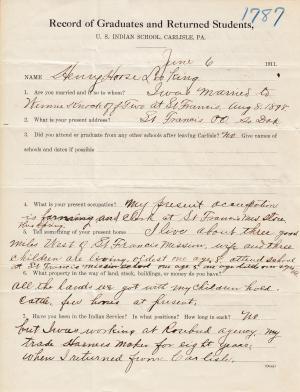 1787
Record of Graduates and Returned Students,
U. S. INDIAN SCHOOL, CARLISLE, PA.
June 6 1911.
NAME Henry Horse
1. Are you married and to whom? I was married to
at St Francis, Aug 8. 1898
2. What is your present address? St Francis So Dak
3. Did you attend or graduate from any other schools after leaving Carlisle? No. Give names
of schools and dates if possible
4. What is your present occupation? My present occupation
is farming and Clerk at St Francis Store
5. Tell something of your present home I live about three good
miles West of St Francis Mission, wife and three
children are living, oldest one age 8. attend school
at St Francis mission school one age
6. What property in the way of land, stock, buildings or money do you have?
all the lands we got with my children hold.
Cattle. few horse at present.
7. Have you been in the Indian Service? In what positions? How long in each? No
but I was working at Rosebud agency, my
trade Harness maker for eight years,
when I returned from Carlisle.